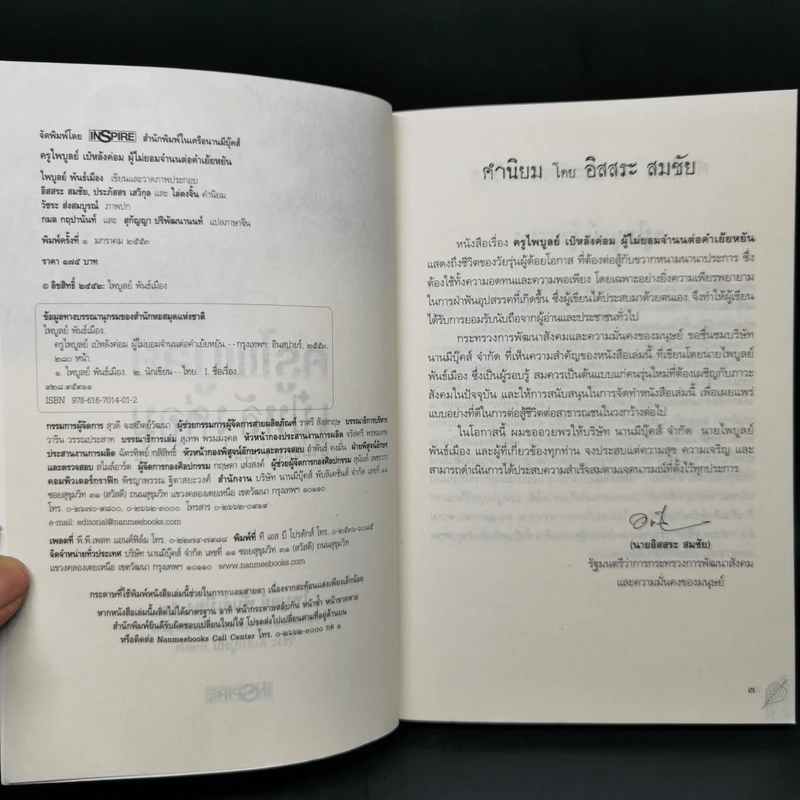 จัดพิมพ์โดย INSPIRE สำนักพิมพ์ในเครือนานมีบุ๊คส์
ครูไพบูลย์ เป้หลังค่อม ผู้ไม่ยอมจำนนต่อคำเย้ยหยัน
ไพบูลย์ พันธ์เมือง เขียนและวาดภาพประกอบ
อิสสระ สมชัย, ประภัสสร เสวิกุล และ ไล่ตงจิ้น คำนิยม
วัชระ ส่งสมบูรณ์ ภาพปก
กมล กฤปานันท์ และ สุกัญญา ปริพัฒนานนท์ แปลภาษาจีน
พิมพ์ครั้งที่ ๑ มกราคม ๒๕๕๓
ราคา ๑๗๕ บาท
© ลิขสิทธิ์ ๒๕๕๒: ไพบูลย์ พันธ์เมือง
ข้อมูลทางบรรณานุกรมของสำนักหอสมุดแห่งชาติ
ไพบูลย์ พันธ์เมือง.
ครูไพบูลย์ เป้หลังค่อม ผู้ไม่ยอมจำนนต่อคำเย้ยหยัน.--กรุงเทพฯ: อินสปายร์, ๒๕๕๓.
๒๘๐ หน้า.
๑. ไพบูลย์ พันธ์เมือง ๒. นักเขียน--ไทย. I. ชื่อเรื่อง.
๙๒๘.๙๕๙๑๑
ISBN 978-616-7014-01-2
กรรมการผู้จัดการ สุวดี จงสถิตย์วัฒนา ผู้ช่วยกรรมการผู้จัดการสายผลิตภัณฑ์ ราตรี สังสกฤษ บรรณาธิการบริหาร
วาริน วรรณประสาท บรรณาธิการเล่ม สุเทพ พรมมงคล หัวหน้ากองประสานงานการผลิต จรัสศรี พรหมเทพ
ประสานงานการผลิต ฉัตรทิพย์ กสิสิทธิ์ หัวหน้ากองพิสูจน์อักษรและตรวจสอบ อำพันธ์ คงมั่น ฝ่ายพิสูจน์อักษร
และตรวจสอบ สไมล์อาร์ต ผู้จัดการกองศิลปกรรม กฤษดา เส่งสงค์ ผู้ช่วยผู้จัดการกองศิลปกรรม สุนันท์
คอมพิวเตอร์กราฟิก พิชญาพรรณ ฐิตาสยะวงศ์ สำนักงาน บริษัท นานมีบุ๊คส์ พับลิเคชันส์ จำกัด เลขที่ ๑๑
ซอยสุขุมวิท ๓๑ (สวัสดี) ถนนสุขุมวิท แขวงคลองเตยเหนือ เขตวัฒนา กรุงเทพฯ ๑๐๑๑๐
โทร. ๐-๒๖๗๐-๙๘๐๐, ๐-๒๖๖๒-๓๐๐๐ โทรสาร ๐-๒๖๖๒-๐๙๑๙
e-mail: editorial@nanmeebooks.com
เพลตที่ พี.พี.เพลท แอนด์ฟิล์ม โทร. ๐-๒๒๗๔-๗๙๘๘ พิมพ์ที่ ที เอส บี โปรดักส์ โทร. ๐-๒๕๓๖-๖๐๘๕
จัดจำหน่ายทั่วประเทศ บริษัท นานมีบุ๊คส์ จำกัด เลขที่ ๑๑ ซอยสุขุมวิท ๓๑ (สวัสดี) ถนนสุขุมวิท
แขวงคลองเตยเหนือ เขตวัฒนา กรุงเทพฯ ๑๐๑๑๐ www.nanmeebooks.com
กระดาษที่ใช้พิมพ์หนังสือเล่มนี้ช่วยในการถนอมสายตา เนื่องจากสะท้อนแสงเพียงเล็กน้อย
หากหนังสือเล่มนี้ผลิตไม่ได้มาตรฐาน อาทิ หน้ากระดาษสลับกัน หน้าซ้ำ หน้าขาดหาย
สำนักพิมพ์ยินดีรับผิดชอบเปลี่ยนใหม่ให้ โปรดส่งไปเปลี่ยนตามที่อยู่ด้านบน
หรือติดต่อ Nanmeebooks Call Center โทร. ๐-๒๖๖๒-๓๐๐๐ กด ๑
คำนิยม โดย อิสสระ สมชัย
หนังสือเรื่อง ครูไพบูลย์ เป้หลังค่อม ผู้ไม่ยอมจำนนต่อคำเย้ยหยัน
แสดงถึงชีวิตของวัยรุ่นผู้ด้อยโอกาส ที่ต้องต่อสู้กับขวากหนามนานาประการ ซึ่ง
ต้องใช้ทั้งความอดทนและความพอเพียง โดยเฉพาะอย่างยิ่งความเพียรพยายาม
ในการฝ่าฟันอุปสรรคที่เกิดขึ้น ซึ่งผู้เขียนได้ประสบมาด้วยตนเอง จึงทำให้ผู้เขียน
ได้รับการยอมรับนับถือจากผู้อ่านและประชาชนทั่วไป
กระทรวงการพัฒนาสังคมและความมั่นคงของมนุษย์ ขอชื่นชมบริษัท
นานมีบุ๊คส์ จำกัด ที่เห็นความสำคัญของหนังสือเล่มนี้ ที่เขียนโดยนายไพบูลย์
พันธ์เมือง ซึ่งเป็นผู้รอบรู้ สมควรเป็นต้นแบบแก่คนรุ่นใหม่ที่ต้องเผชิญกับภาวะ
สังคมในปัจจุบัน และให้การสนับสนุนในการจัดทำหนังสือเล่มนี้ เพื่อเผยแพร่
แบบอย่างที่ดีในการต่อสู้ชีวิตต่อสาธารณชนในวงกว้างต่อไป
ในโอกาสนี้ ผมขออวยพรให้บริษัท นานมีบุ๊คส์ จำกัด นายไพบูลย์
พันธ์เมือง และผู้ที่เกี่ยวข้องทุกท่าน จงประสบแต่ความสุข ความเจริญ และ
สามารถดำเนินการได้ประสบความสำเร็จสมตามเจตนารมณ์ที่ตั้งไว้ทุกประการ
(นายอิสสระ สมชัย)
รัฐมนตรีว่าการกระทรวงการพัฒนาสังคม
และความมั่นคงของมนุษย์
๓